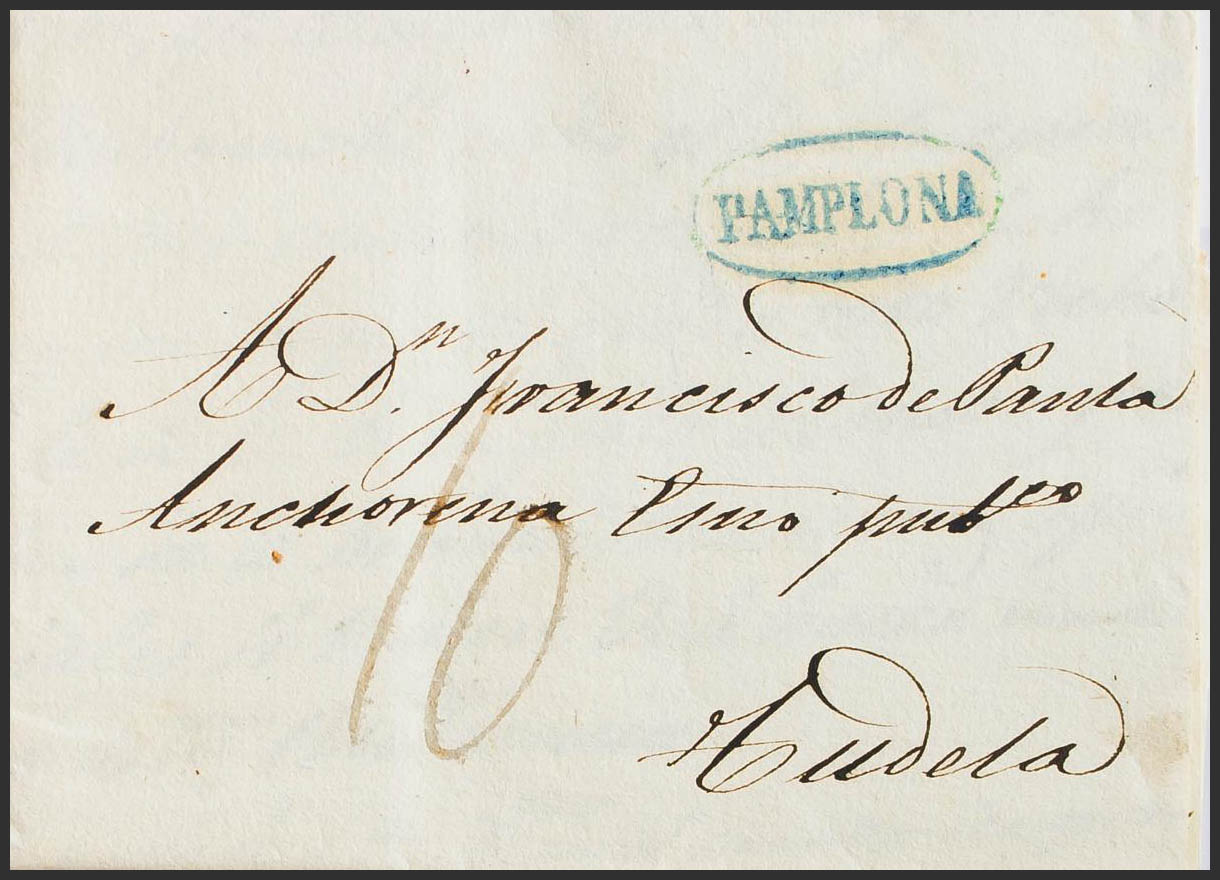 PAMPLONA
A Dn. Francisco de Paula
Anchorena Esno pubco
10
Tudela